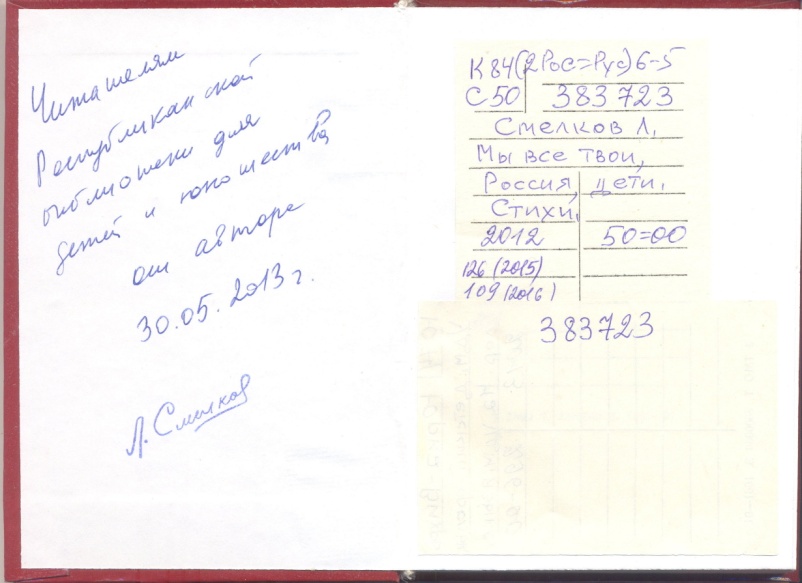 Читателям
Республиканской
библиотеки для
детей и юношества
от автора
30.05.2013 г.
Л. Смелков
К 84(2Рос=Рус)6-5
С50 383723
Смелков Л.
Мы все твои,
Россия, дети.
Стихи.
2012 50=00
126 (2015)
109 (2016)
383723